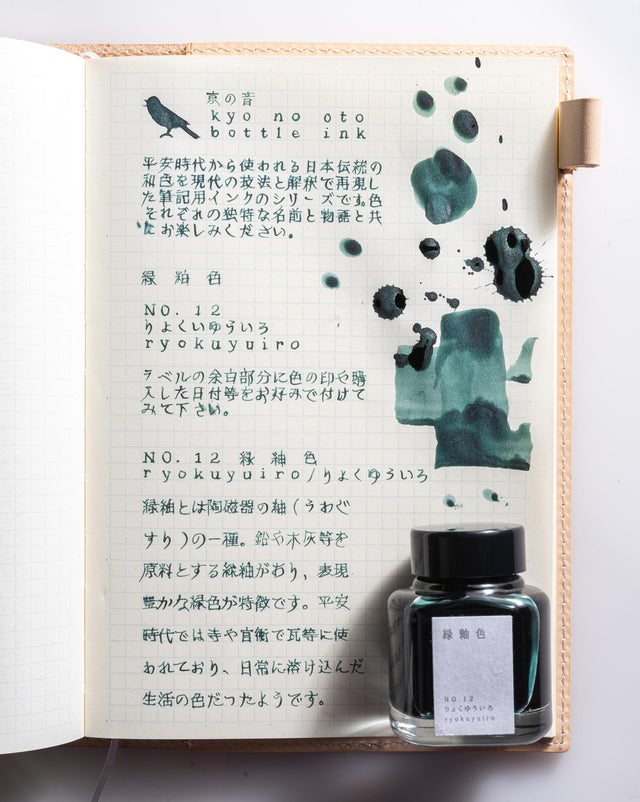 京の音
kyo no oto
bottle ink
平安時代から使われる日本伝統の
和色を現代の技法と解釈で再現し
た筆記用インクのシリーズです。色
それぞれの独特な名前と物語と共
にお楽しみください。
緑粕色
NO. 12
りょくいゆういろ
ryokuyuiro
ラベルの余白部分に色の印や購
入した日付等をお好みで付けて
みて下さい。
NO. 12 緑釉色
ryokuyuiro/りょくゆういろ
緑釉とは陶磁器の釉(うわぐ
すり)の一種。鉛や木灰等を
原料とする緑釉がおり、表現
豊かな緑色が特徴です。平安
時代では寺や官衙で瓦等に使
われており、日常に溶け込んだ
生活の色だったようです。
緑釉色
NO.12
りょくゆういろ
ryokuyuiro